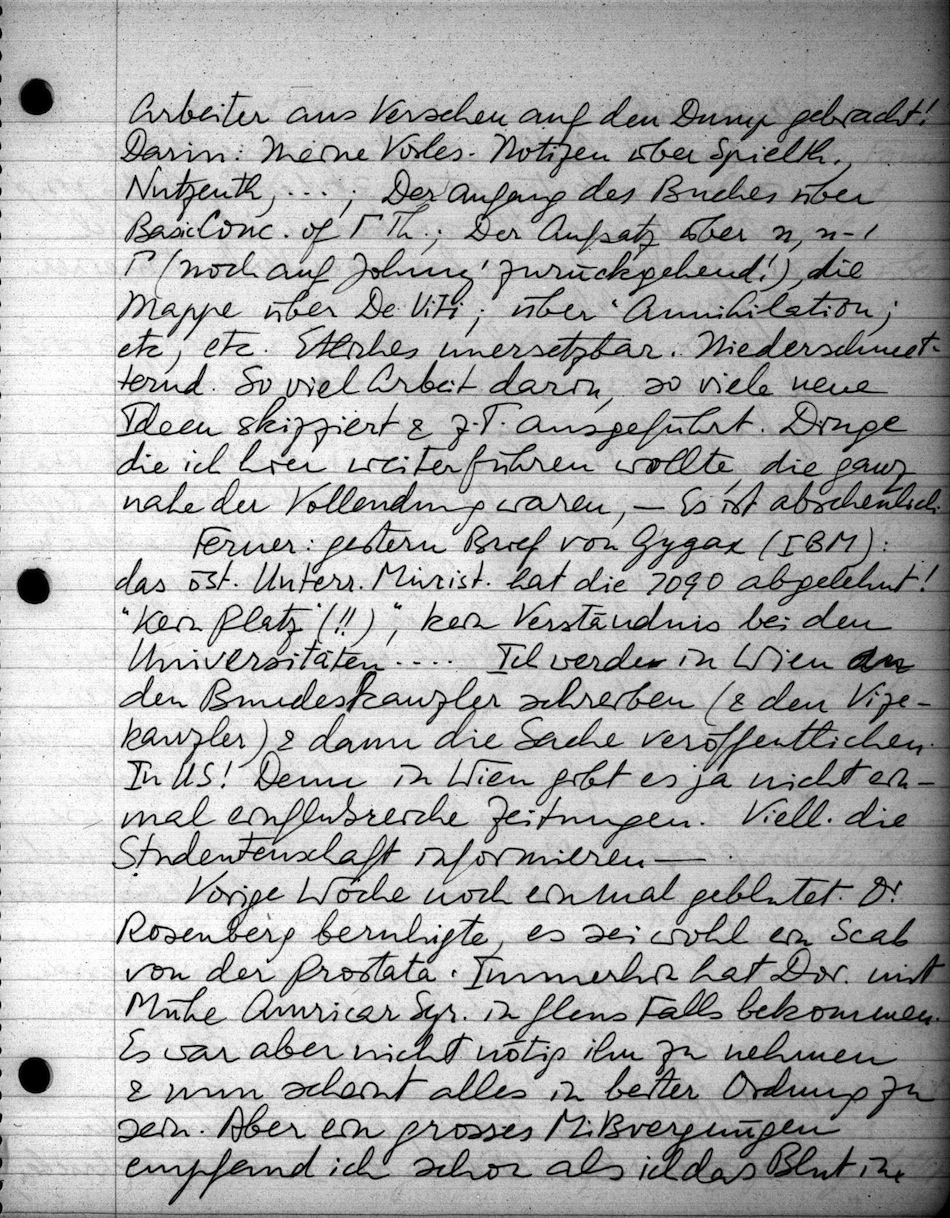 Arbeiter aus Versehen auf den Dump gebracht!
Darin: Meine Vorles. Notizen über Spielth.,
Nutzenth, ...; Der anfang des Buches über
Basic Conc. of Γ Th.; Der Aufsatz über n, n-1
Γ (noch auf Johnny zurückgehend!), die
Mappe über De Viti; über Annihilation;
etc, etc. Etliches unersetzbar. Niederschmet-
ternd. So viel Arbeit darin, so viele neue
Ideen skizziert & z.T. ausgeführt. Dinge
die ich hier weiterführen wollte, die ganz
nahe der Vollendung waren, — Es ist abscheulich.
Ferner: gestern Brief von Gygax (IBM):
das öst. Unterr. Minist. hat die 7090 abgelehnt!
"Kein Platz (!!)", kein Verständnis bei den
Universitäten .... Ich werde in Wien an
den Bundeskanzler schreiben (& den Vize-
kanzler) & dann die Sache veröffentlichen.
In US! Denn in Wien gibt es ja nicht ein-
mal einflußreiche Zeitungen. Viell. die
Studentenschaft informieren —
Vorige Woche noch einmal geblutet. Dr.
Rosenberg beruhigte, es sei wohl ein Scab
von der Prostata. Immerhin hat Dor. mit
Mühe Amricar Syr. in Glens Falls bekommen.
Es war aber nicht nötig ihn zu nehmen
& nun scheint alles in bester Ordnung zu
sein. Aber ein grosses Mißvergnügen
empfand ich schon als ich das Blut im